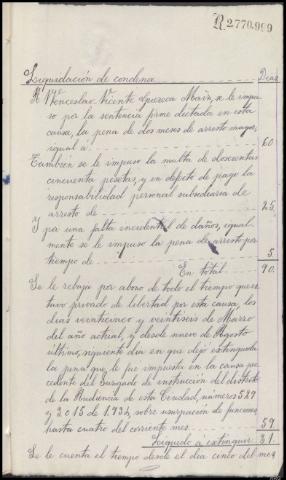 R.2770,969
Liquidación de condena Días
A Wenceslao Vicente Marín, se le impu-
so por la sentencia firme dictada en esta
causa, la pena de dos meses de arresto mayor,
igual a 60
También se le impuso la multa de doscientas
cincuenta pesetas, y en defecto de pago la
responsabilidad personal subsidiaria de
arresto de 25,
Y por una falta incidental de daños, igual-
mente se le impuso la pena de arresto por
tiempo de 5
En total 90,
Se le rebaja por abono de todo el tiempo que es-
tuvo privado de libertad por esta causa, los
días veinticinco y veintiseis de Marzo
del año actual, y desde nueve de Agosto
último, siguiente día en que dejó extinguida
la pena que le fue impuesta en la causa pro-
cedente del Juzgado de instrucción del distrito
de la Audiencia de esta Ciudad, números 529
y 2015 de 1934, sobre usurpación de funciones,
hasta cuatro del corriente mes 59
Líquido a extinguir 31
Se le cuenta el tiempo desde el día cinco del mes